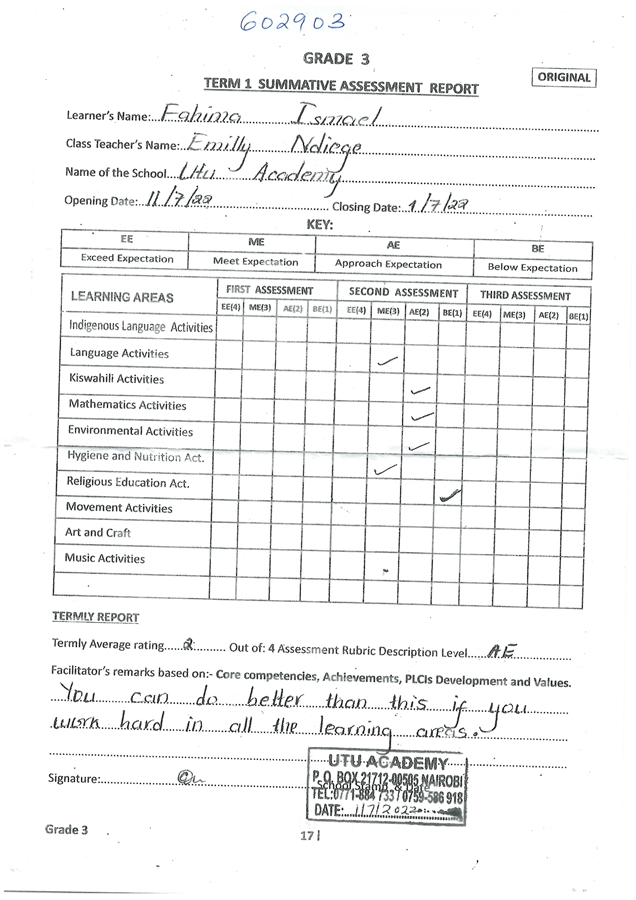 602903
GRADE 3
ORIGINAL
TERM 1 SUMMATIVE ASSESSMENT REPORT
Learner's Name: Fahima Ismael
Class Teacher's Name: Emilly Ndiege
Name of the School Utu Academy
Opening Date: 11/7/22 Closing Date: 1/7/22
KEY:
EE ME AE BE
Exceed Expectation Meet Expectation Approach Expectation Below Expectation
LEARNING AREAS FIRST ASSESSMENT SECOND ASSESSMENT THIRD ASSESSMENT
EE(4) ME(3) AE(2) BE(1) EE(4) ME(3) AE(2) BE(1) EE(4) ME(3) AE(2) BE(1)
Indigenous Language Activities
Language Activities ✓
Kiswahili Activities ✓
Mathematics Activities ✓
Environmental Activities ✓
Hygiene and Nutrition Act. ✓
Religious Education Act. ✓
Movement Activities
Art and Craft
Music Activities -
TERMLY REPORT
Termly Average rating 2 Out of: 4 Assessment Rubric Description Level AE
Facilitator's remarks based on:- Core competencies, Achievements, PLCIs Development and Values.
You can do better than this if you
work hard in all the learning areas.
UTU ACADEMY
P. O. BOX 21712-00505 NAIROBI
Signature: School Stamp & Date
TEL:0771-884 733 / 0759-586 918
DATE: 1/7/2022
Grade 3
17